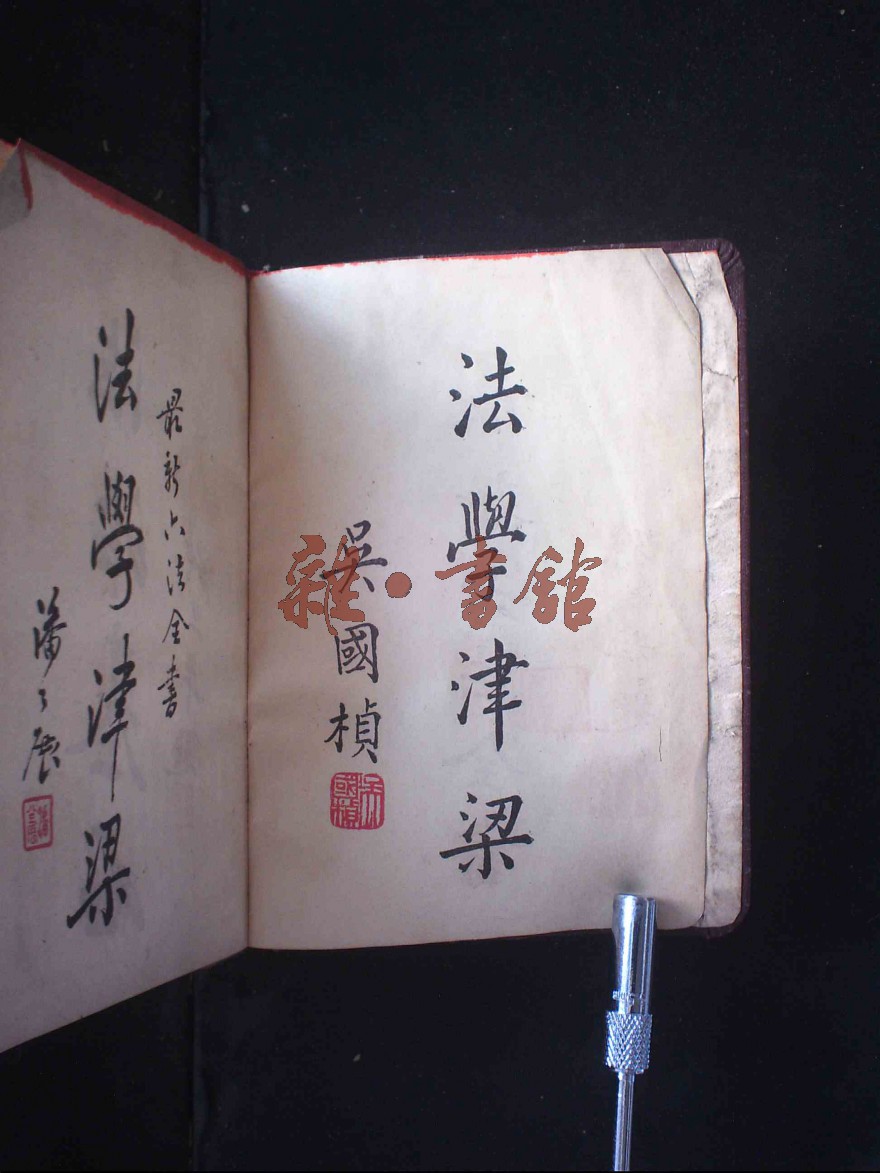 法學津梁
吳國楨
吳國楨
最新六法全書
法學津梁
潘公展
雜·書館